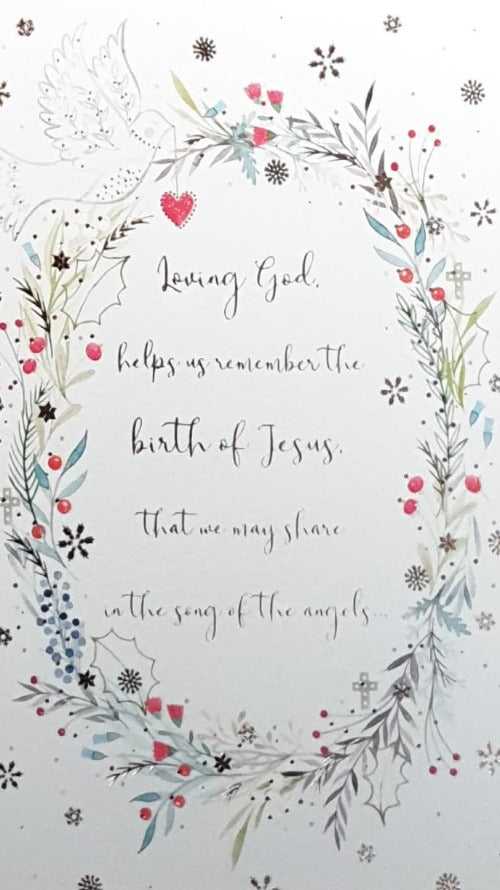 Loving God,
helps us remember the
birth of Jesus,
that we may share
in the song of the angels...